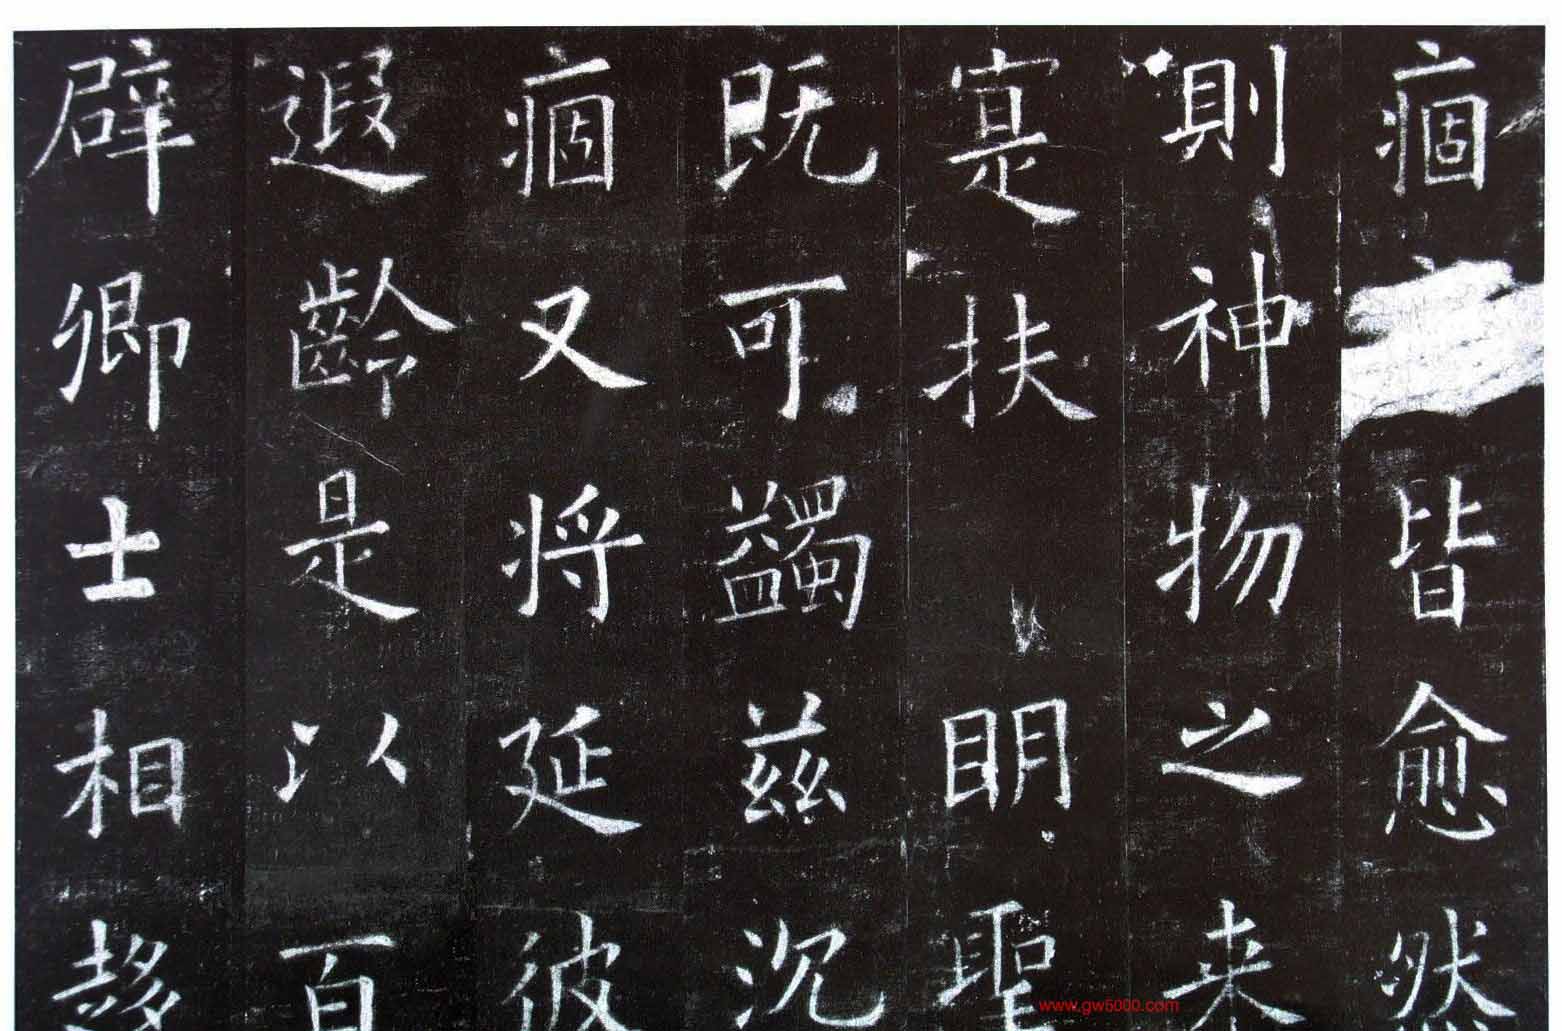 痼 皆愈然
則神物之来
寔扶 明聖
既可蠲兹沉
痼又将延彼
遐齡是以百
辟卿士相趍
www.gw5000.com